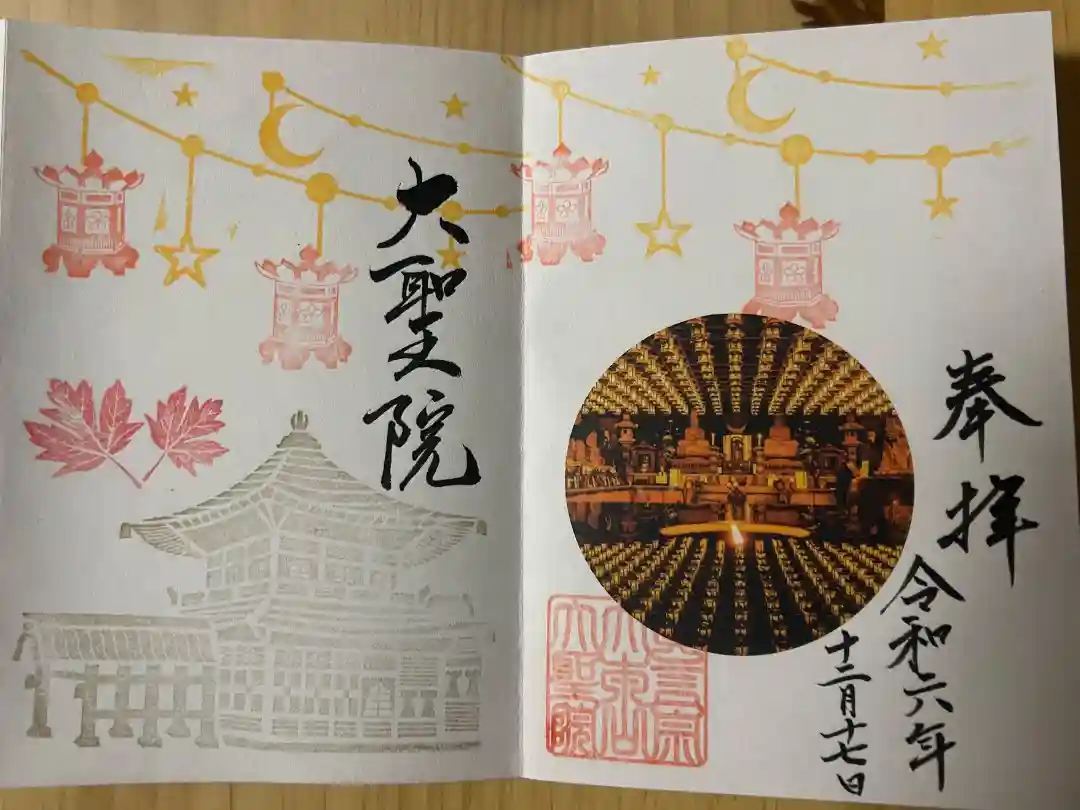 奉拝
令和六年
十二月十七日
真言宗
大本山
大聖院
大聖院